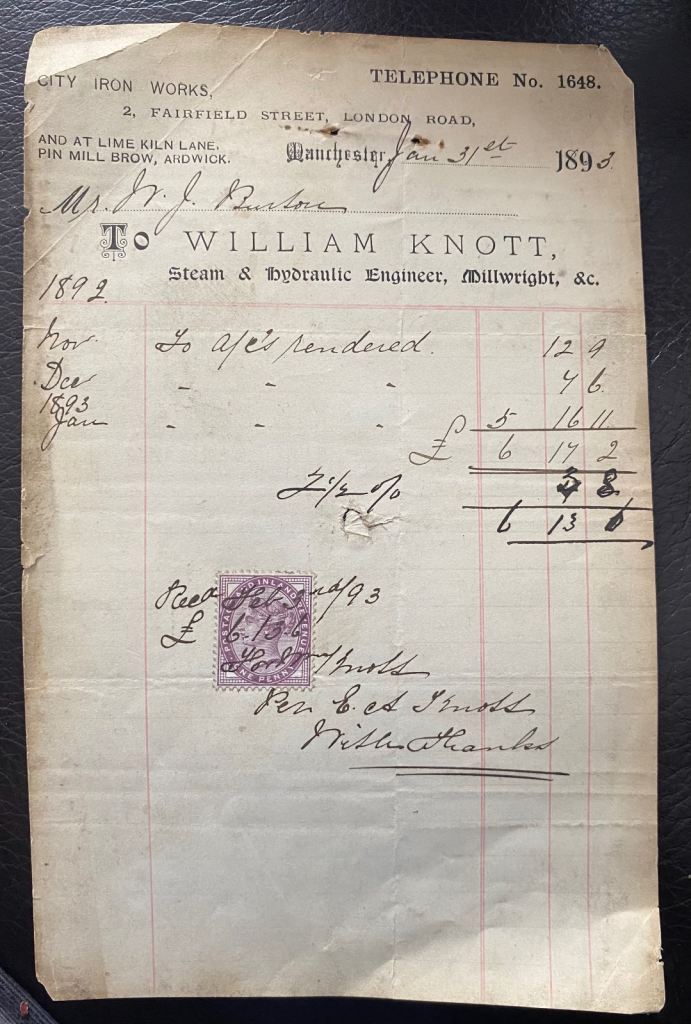 CITY IRON WORKS,
TELEPHONE No. 1648.
2, FAIRFIELD STREET, LONDON ROAD,
AND AT LIME KILN LANE,
PIN MILL BROW, ARDWICK.
Manchester, Jan 31st 1893
Mr. W. J. Burton
To WILLIAM KNOTT,
Steam & Hydraulic Engineer, Millwright, &c.
1892
Nov To a/c's rendered. 12 9
Dec " " " 7 6
1893
Jan " " " 5 16 11
£ 6 17 2
2 1/2 % 3 8
6 13 6
Recd Feb 2nd/93
£ 6.13.6
POSTAGE AND INLAND REVENUE
ONE PENNY
Knott
Per E. A Knott
With Thanks